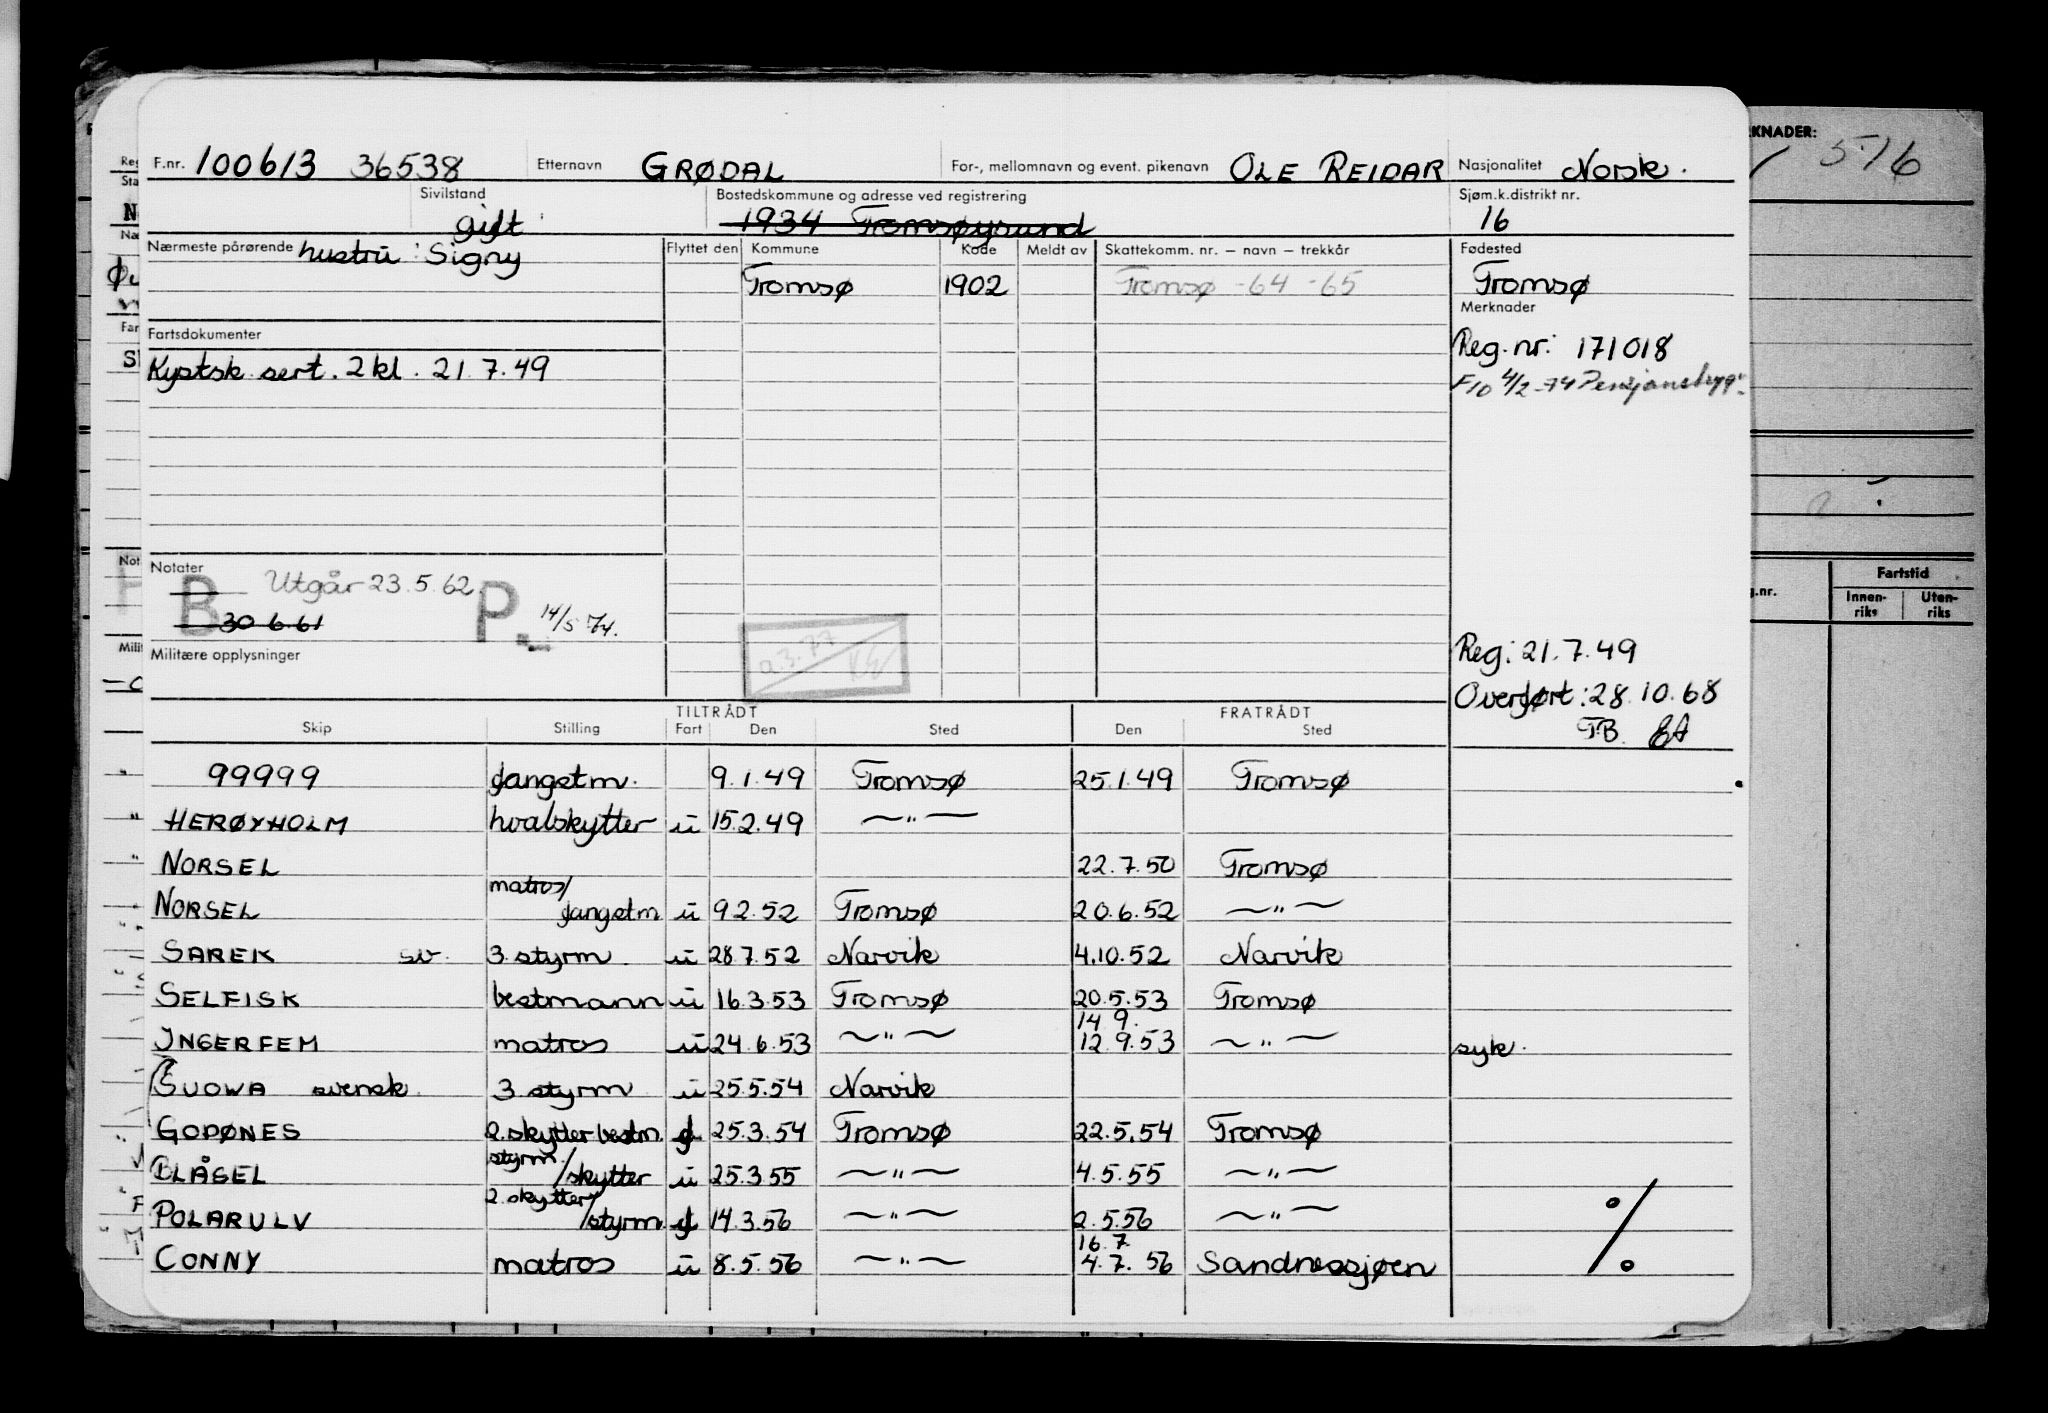 F.nr. 100613 36538 Etternavn GRØDAL For-, mellomnavn og event. pikenavn OLE REIDAR Nasjonalitet Norsk.
Sivilstand gift Bostedskommune og adresse ved registrering 1934 Tromsøysund Sjøm.k.distrikt nr. 16
Nærmeste pårørende hustru: Signy Flyttet den Kommune Kode Meldt av Skattekomm. nr. – navn – trekkår Fødested
Tromsø 1902 Tromsø -64 -65 Tromsø
Merknader
Fartsdokumenter Reg. nr: 171018
Kystsk. sert. 2 kl. 21.7.49 F10 4/2-74 Pensjonstrygd.
Notater
B Utgår 23.5.62. P.
30 6 61 14/5 74.
Militære opplysninger Reg: 21.7.49
Overført: 28.10.68
TB.
TILTRÅDT FRATRÅDT
Skip Stilling Fart Den Sted Den Sted
99999 fangstm. 9.1.49 Tromsø 25.1.49 Tromsø
HERØYHOLM hvalskytter u 15.2.49 — " —
NORSEL 22.7.50 Tromsø
NORSEL matros/fangstm u 9 2.52 Tromsø 20.6.52 — " —
SAREK sv. 3. styrm. u 28.7.52 Narvik 4.10.52 Narvik
SELFISK bestmann u 16.3.53 Tromsø 20.5.53 Tromsø
14 9.
INGERFEM matros u 24.6.53 — " — 12.9.53 — " — syk.
SUOWA svensk. 3. styrm u 25.5.54 Narvik
GODØNES 2. skytter bestm. f 25.3.54 Tromsø 22.5.54 Tromsø
BLÅSEL styrm./skytter u 25.3.55 — " — 4.5.55 — " —
POLARULV 2. skytter/styrm. f 14.3.56 — " — 2.5.56 — " —
16.7
CONNY matros u 8.5.56 — " — 4.7.56 Sandnessjøen
%
KNADER:
516
Fartstid
Innen-riks Uten-riks